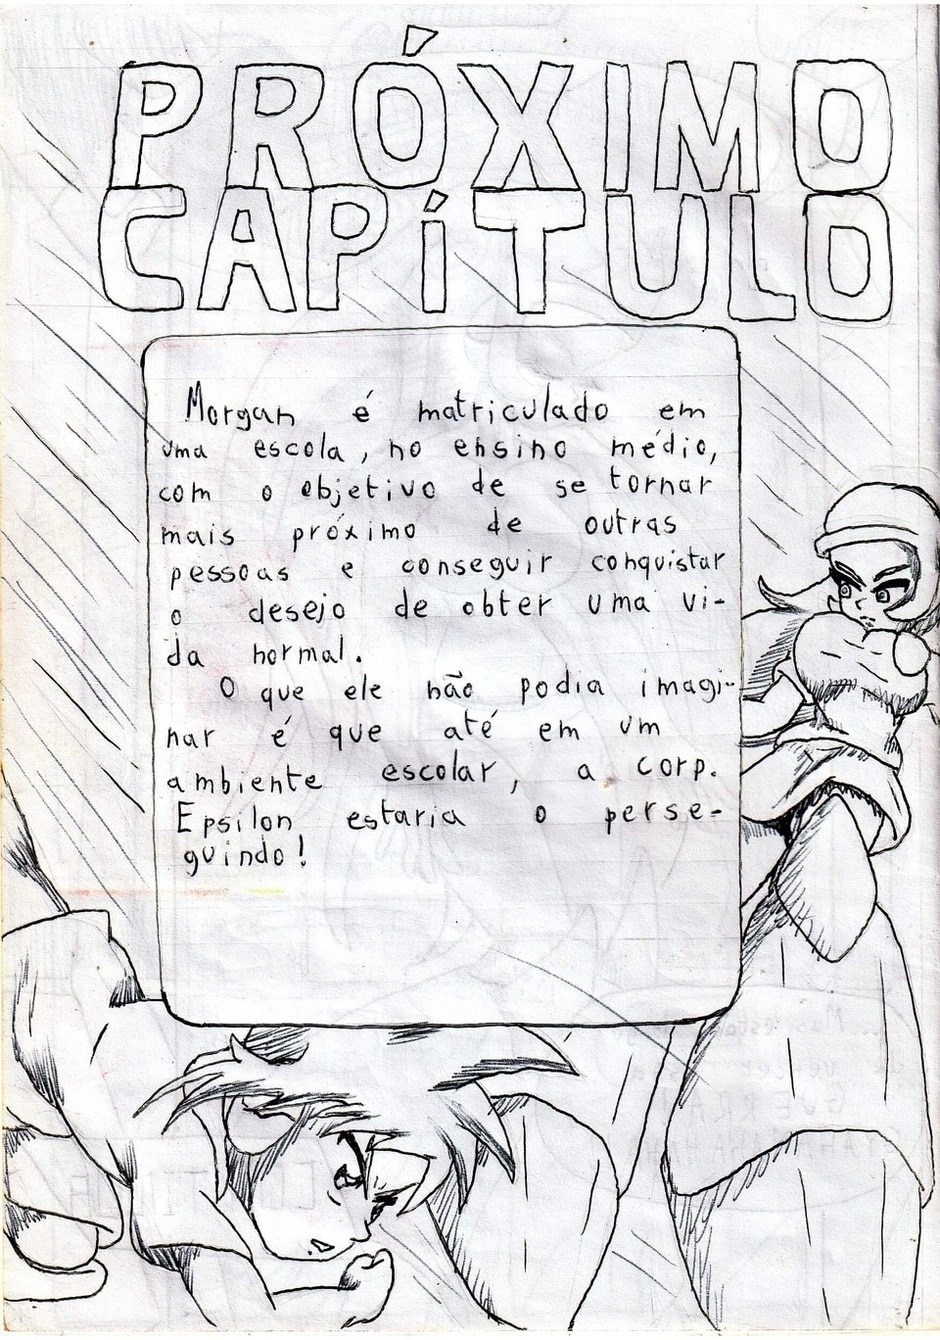 PRÓXIMO
CAPÍTULO
Morgan é matriculado em
uma escola, no ensino médio,
com o objetivo de se tornar
mais próximo de outras
pessoas e conseguir conquistar
o desejo de obter uma vi-
da normal.
O que ele não podia imagi-
nar é que até em um
ambiente escolar, a corp.
Epsilon estaria o perse-
guindo!